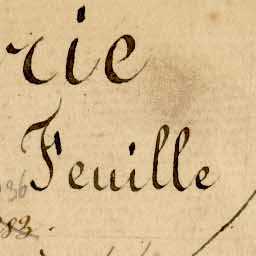 rie
Feuille
36
83.